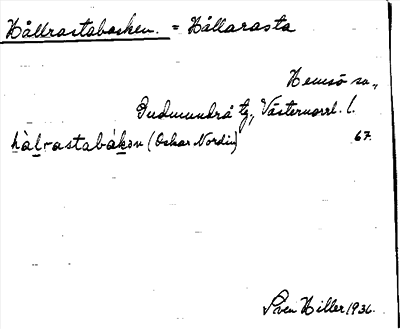 Hållrastabacken. = Hållarasta
Hemsö sn.,
Gudmundrå tg, Västernorrl. l.
hàlrastabákən (Oskar Nordin) 67.
Sven Hiller 1936.